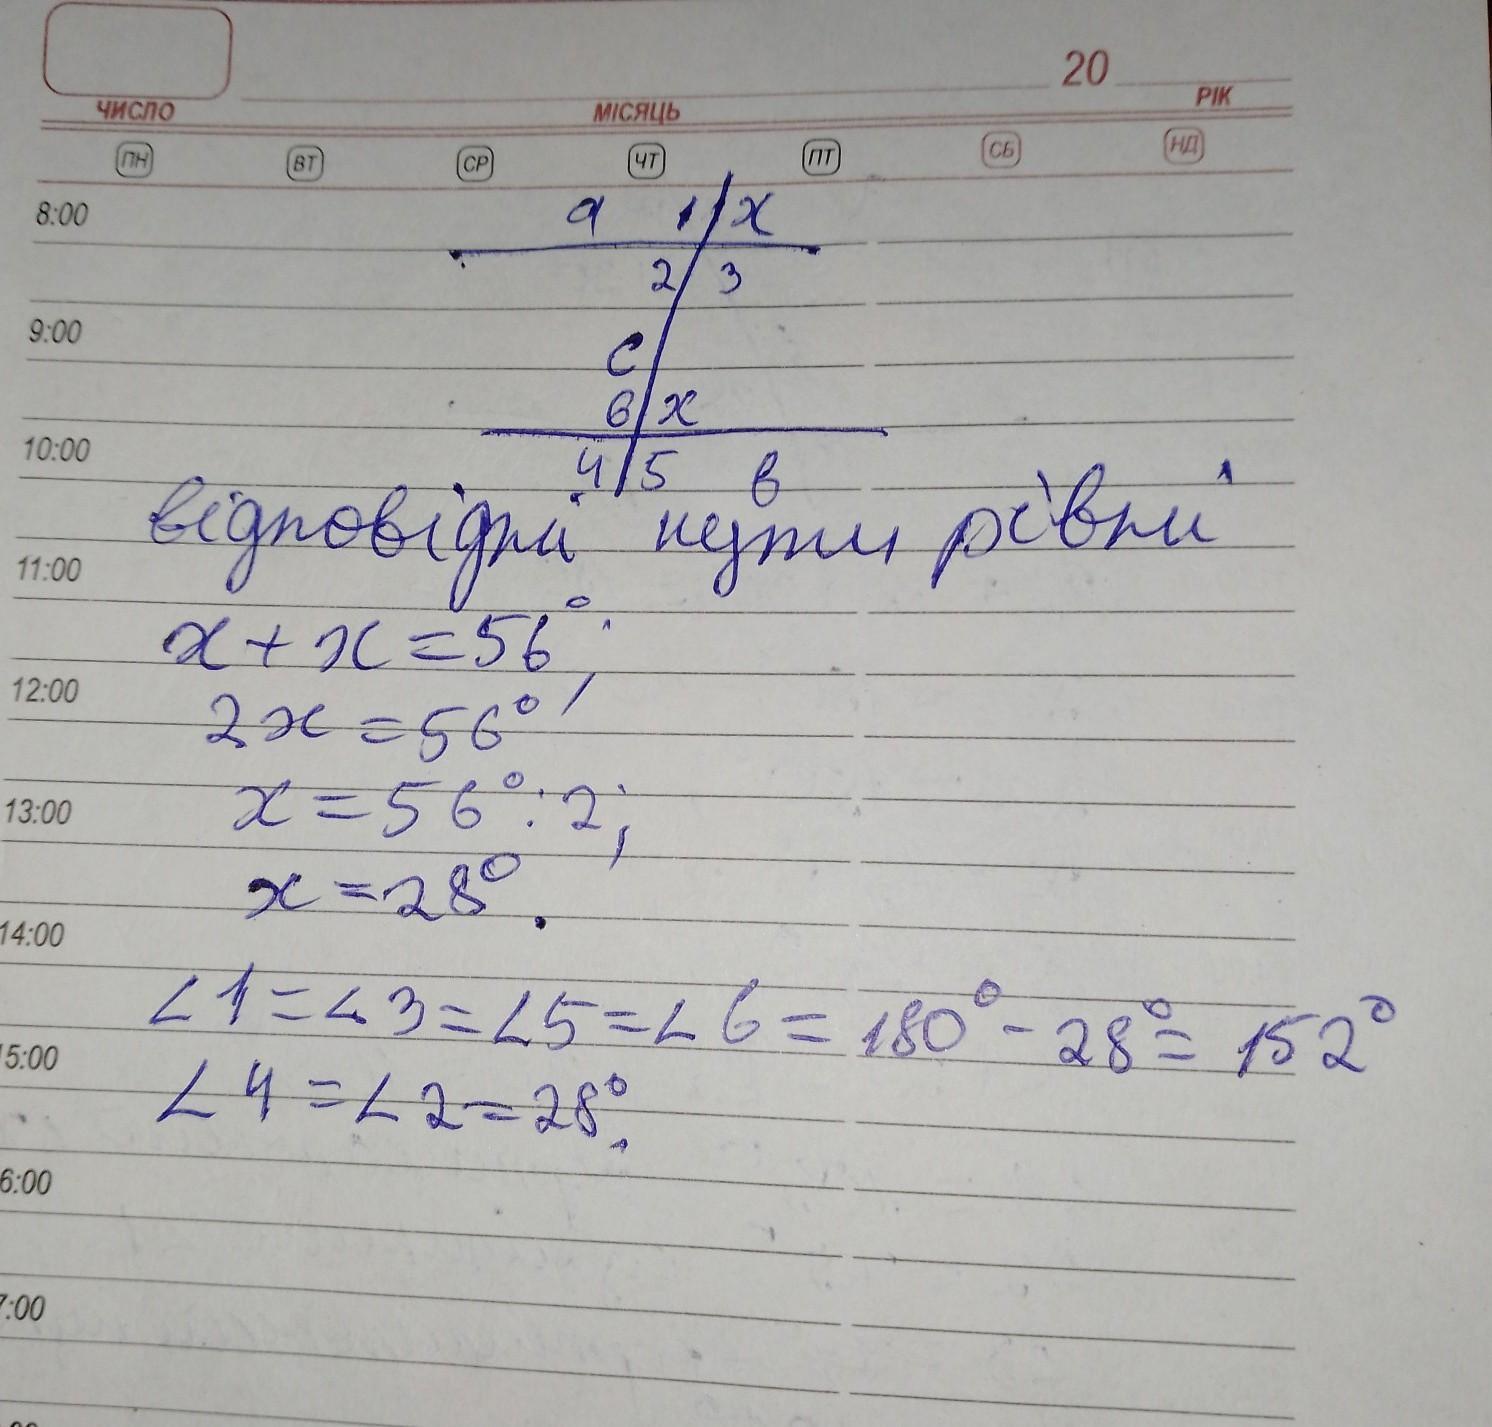 20
ЧИСЛО МІСЯЦЬ РІК
ПН ВТ СР ЧТ ПТ СБ НД
8:00 a 1 x
2 3
9:00
c
6 x
10:00
4 5 b
відповідні кути рівні
11:00
x + x = 56°;
12:00
2x = 56°;
x = 56° : 2;
13:00
x = 28°.
14:00
∠1 = ∠3 = ∠5 = ∠6 = 180° - 28° = 152°
15:00
∠4 = ∠2 = 28°.
6:00
7:00